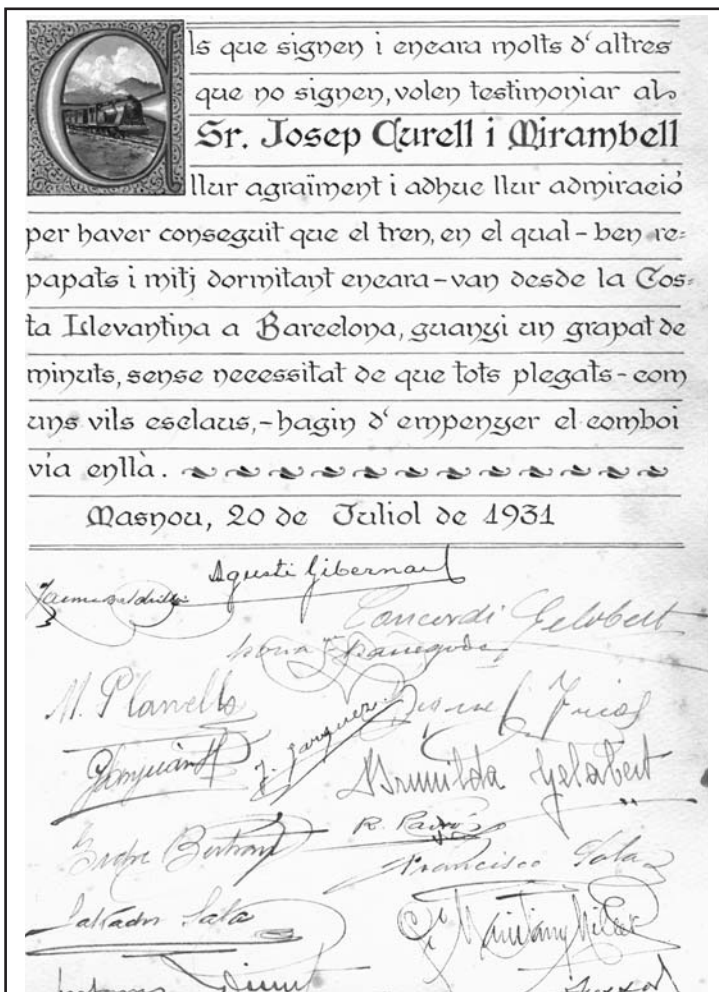 Els que signen i encara molts d'altres
que no signen, volen testimoniar al
Sr. Josep Curell i Mirambell
llur agraïment i adhuc llur admiració
per haver conseguit que el tren, en el qual - ben re=
papats i mitj dormitant encara - van desde la Cos=
ta Llevantina a Barcelona, guanyi un grapat de
minuts, sense necessitat de que tots plegats - com
uns vils esclaus, - hagin d'empenyer el comboi
via enllà.
Masnou, 20 de Juliol de 1931
Agustí Gibernau
Concordi Gelabert
M. Planells
Brunilda Gelabert
R. Parós
Bertran
Francisco Sala
Salvador Sala